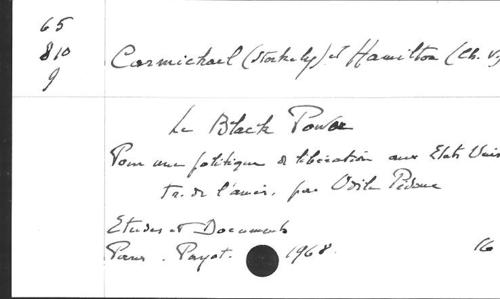 65
810
9
Carmichael (Stokely) et Hamilton (Ch. V.)
Le Black Power
Pour une politique de libération aux Etats Unis
tr. de l'amér. par Odile Pidoux
Etudes et Documents
Paris. Payot. 1968. 16